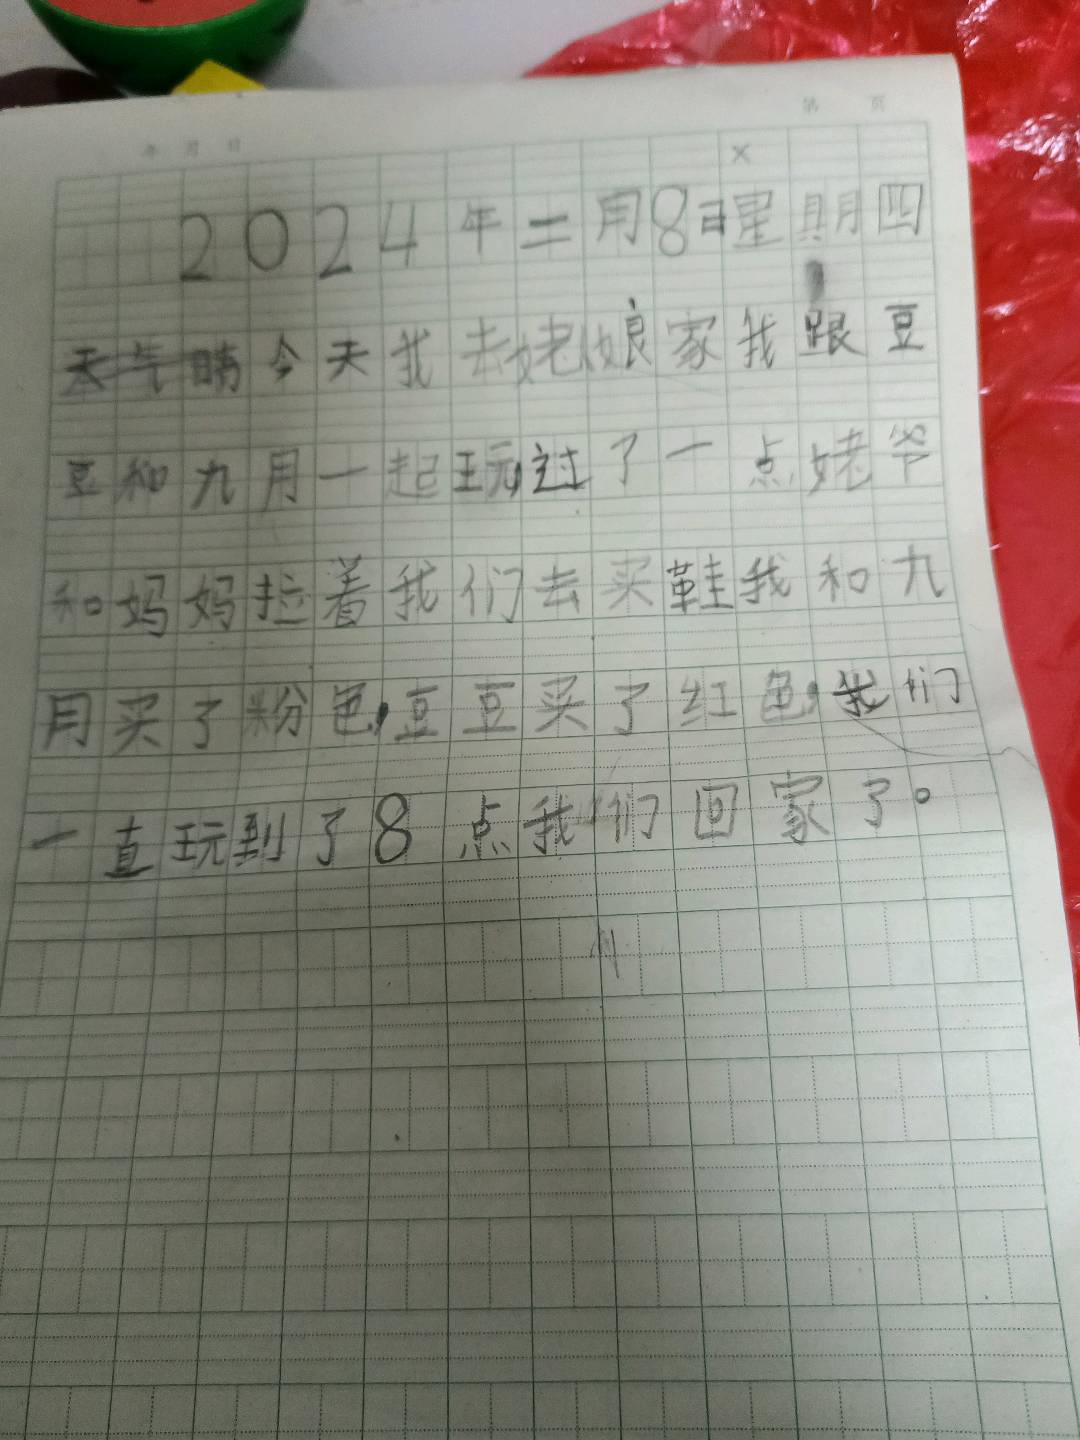 第 页
年 月 日
x
2024年二月8日星期四
天气晴今天我去姥娘家我跟豆
豆和九月一起玩,过了一点姥爷
和妈妈拉着我们去买鞋我和九
月买了粉色,豆豆买了红色,我们
一直玩到了8点我们回家了。